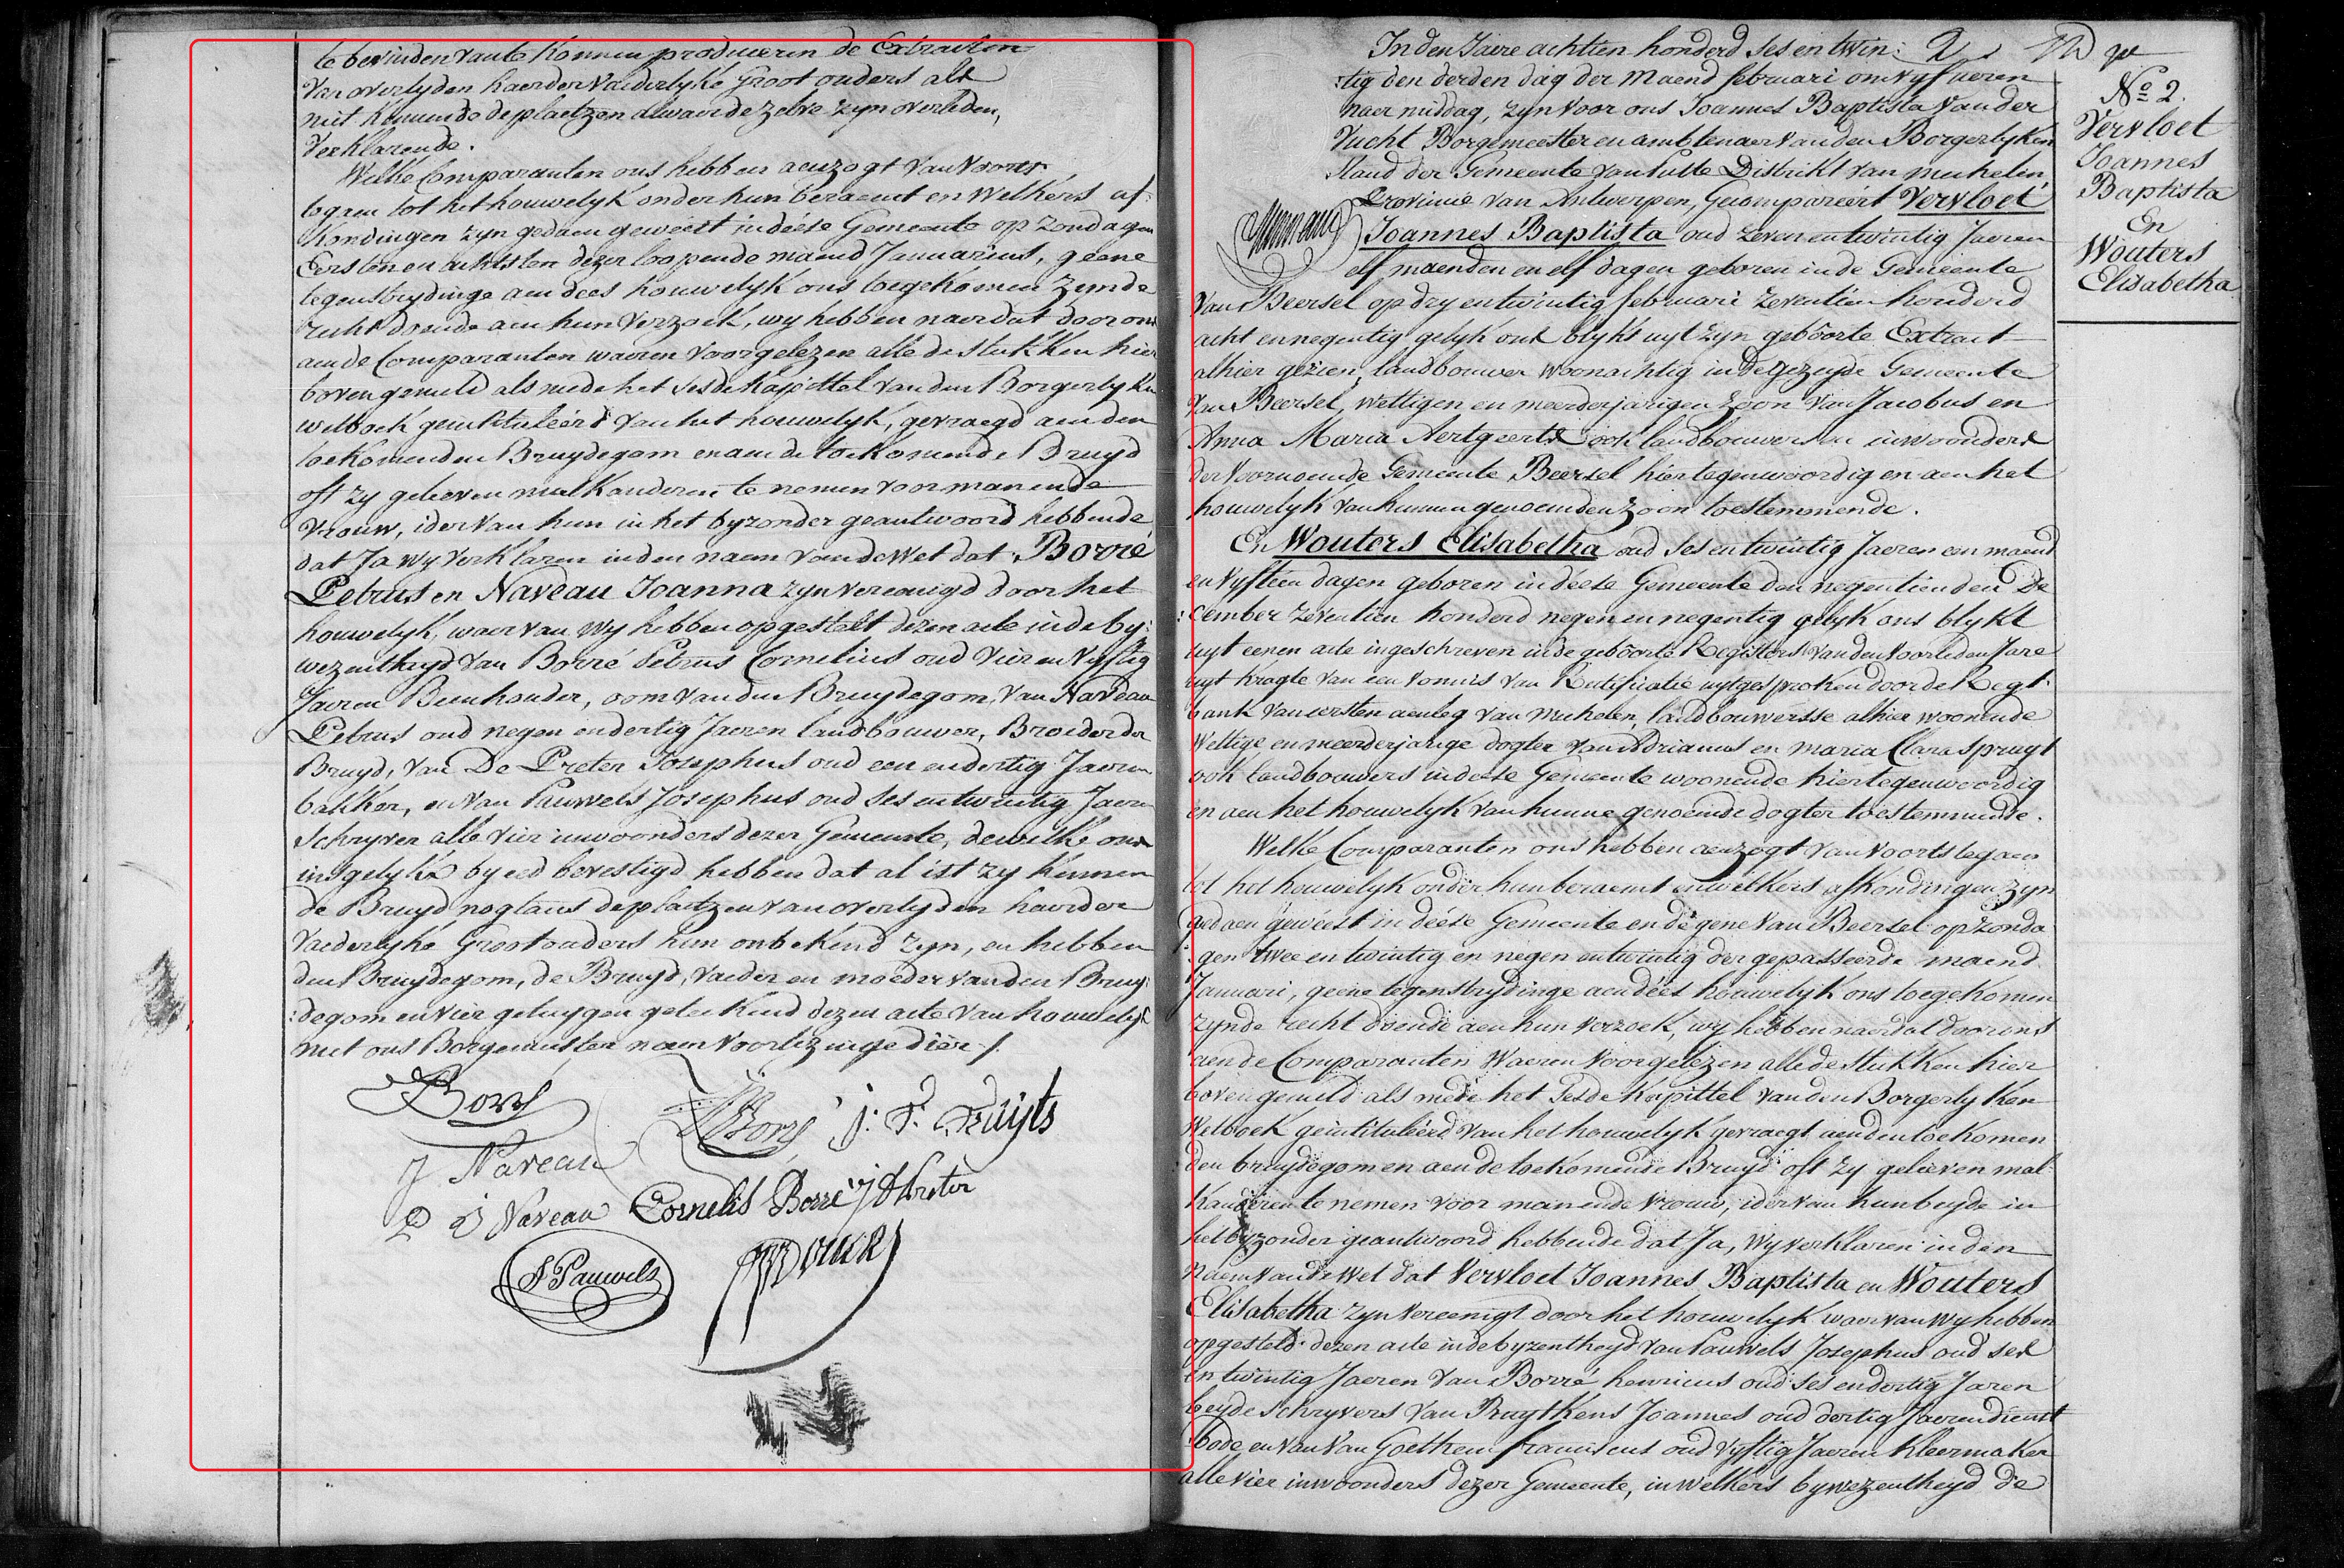 te bevinden van te konnen produceren de Extracten
van overlyden haerder Vaderlyke groot ouders als
niet kennende de plaetzen alwaer de zelve zyn overleden,
Verklarende.
Welke Comparanten ons hebben aenzogt van Voorts
te gaen tot het houwelyk onder hun beraemt en Welkers af:
kondingen zyn gedaen geweest in deése Gemeente op zondagen
Eersten en achtsten dezer loopende maend Januarius, geene
tegenstrydinge aen dees houwelyk ons toegekomen zynde
recht doende aen hun Verzoek, wy hebben naer dat door ons
aen de Comparanten waeren voorgelezen alle de stukken hier
boven gemeld als mede het sesde kapittel van den Borgerlyken
wetboek geintituleérd van het houwelyk, gevraegd aen den
toekomenden Bruydegom en aen de toekomende Bruyd
oft zy gelieven malkanderen te nemen voor man ende
Vrouw, ider van hun in het byzonder geantwoord hebbende
dat Ja wy verklaren in den naem van de Wet dat Borré
Petrus en Naveau Joanna zyn vereenigd door het
houwelyk, waer van wy hebben opgestelt dezen acte in de by:
wezentheyd van Borré Petrus Cornelius oud Vier en Vyftig
Jaeren Beenhouder, oom van den Bruydegom, van Naveau
Petrus oud negen en dertig Jaeren landbouwer, Broeder der
Bruyd, van De Preter Josephus oud een en dertig Jaeren
bakker, en van Pauwels Josephus oud ses en twintig Jaeren
Schryver alle vier inwoonders dezer Gemeente, dewelke ons
ins gelyks by eed bevestigd hebben dat al ist zy kennen
de Bruyd nogtans de plaetzen van overlyden haerder
Vaderlyke Grootouders hun onbekend zyn, en hebben
den Bruydegom, de Bruyd, vaeder en moeder van den Bruy:
:degom en vier getuygen geteekend dezen acte van houwelyk
met ons Borgemeester naer Voorlezinge dier /.
Borré
Borré j: F. Ruijts
J Naveau
P J Naveau Cornelis Borre J D Preter
J Pauwels
In den Jaere achtien honderd ses en twin: 2
:tig den derden dag der Maend februari om vyf ueren
naer middag, zyn voor ons Joannes Baptista Van der
Vucht Borgemeester en ambtenaer van den Borgerlyken
Stand der Gemeente van Putte Distrikt van mechelen,
Provincie van Antwerpen, Gecompareért Vervloet
Joannes Baptista oud zeven en twintig Jaeren
elf maenden en elf dagen geboren in de Gemeente
van Beersel op dry en twintig februari zeventien honderd
acht en negentig gelyk ons blykt uyt zyn geboorte Extract
alhier gezien, landbouwer woonachtig in de gezeyde Gemeente
van Beersel, wettigen en meerderjarigen zoon van Jacobus en
Anna Maria Aertgeerts ook landbouwers en inwoonders
der Voornoemde Gemeente Beersel hier tegenwoordig en aen het
houwelyk van hunnen genoemden zoon toestemmende.
En Wouters Elisabetha oud ses en twintig Jaeren een maend
en vyftien dagen geboren in deése Gemeente den negentienden De
:cember zeventien honderd negen en negentig gelyk ons blykt
uyt eenen acte ingeschreven in de geboorte Registers van den voorleden Jare
uyt kragte van een vonnis van Rectificatie uytgesproken door de Regt:
bank van eersten aenleg van Mechelen, landbouwersse alhier woonende
Wettige en meerderjarige dogter van Adrianus en maria Clara Spruyt
ook landbouwers in deése Gemeente woonende hier tegenwoordig
en aen het houwelyk van hunne genoemde dogter toestemmende.
Welke Comparanten ons hebben aenzogt van voorts te gaen
tot het houwelyk onder hun beraemt en welkers afkondingen zyn
gedaen geweest in deése Gemeente en degene van Beersel op zonda
:gen twee en twintig en negen en twintig der gepasseerde maend
Januari, geene tegenstrydinge aen deés houwelyk ons toegekomen
zynde recht doende aen hun verzoek, wy hebben naer dat door ons
aen de Comparanten Waeren voorgelezen alle de stukken hier
boven gemeld als mede het sesde kapittel van den Borgerlyken
Wetboek geintituleérd van het houwelyk gevraegt aen den toekomen
:den bruydegom en aen de toekomende Bruyd oft zy gelieven mal:
kanderen te nemen voor man ende Vrouw, ider van hun beyde in
het byzonder geantwoord hebbende dat Ja, Wy verklaren in den
naem van de Wet dat Vervloet Joannes Baptista en Wouters
Elisabetha zyn vereenigt door het houwelyk waer van wy hebben
opgesteld dezen acte in de byzentheyd van Pauwels Josephus oud ses
en twintig Jaeren van Borré henricus oud ses en dertig Jaren
beyde schryvers van Pruytkens Joannes oud dertig Jaeren dienst
bode en van Van Goethem franciscus oud vyftig Jaeren kleermaker
alle vier inwoonders dezer Gemeente, in welkers bywezentheyd de
No 2.
Vervloet
Joannes
Baptista
En
Wouters
Elisabetha